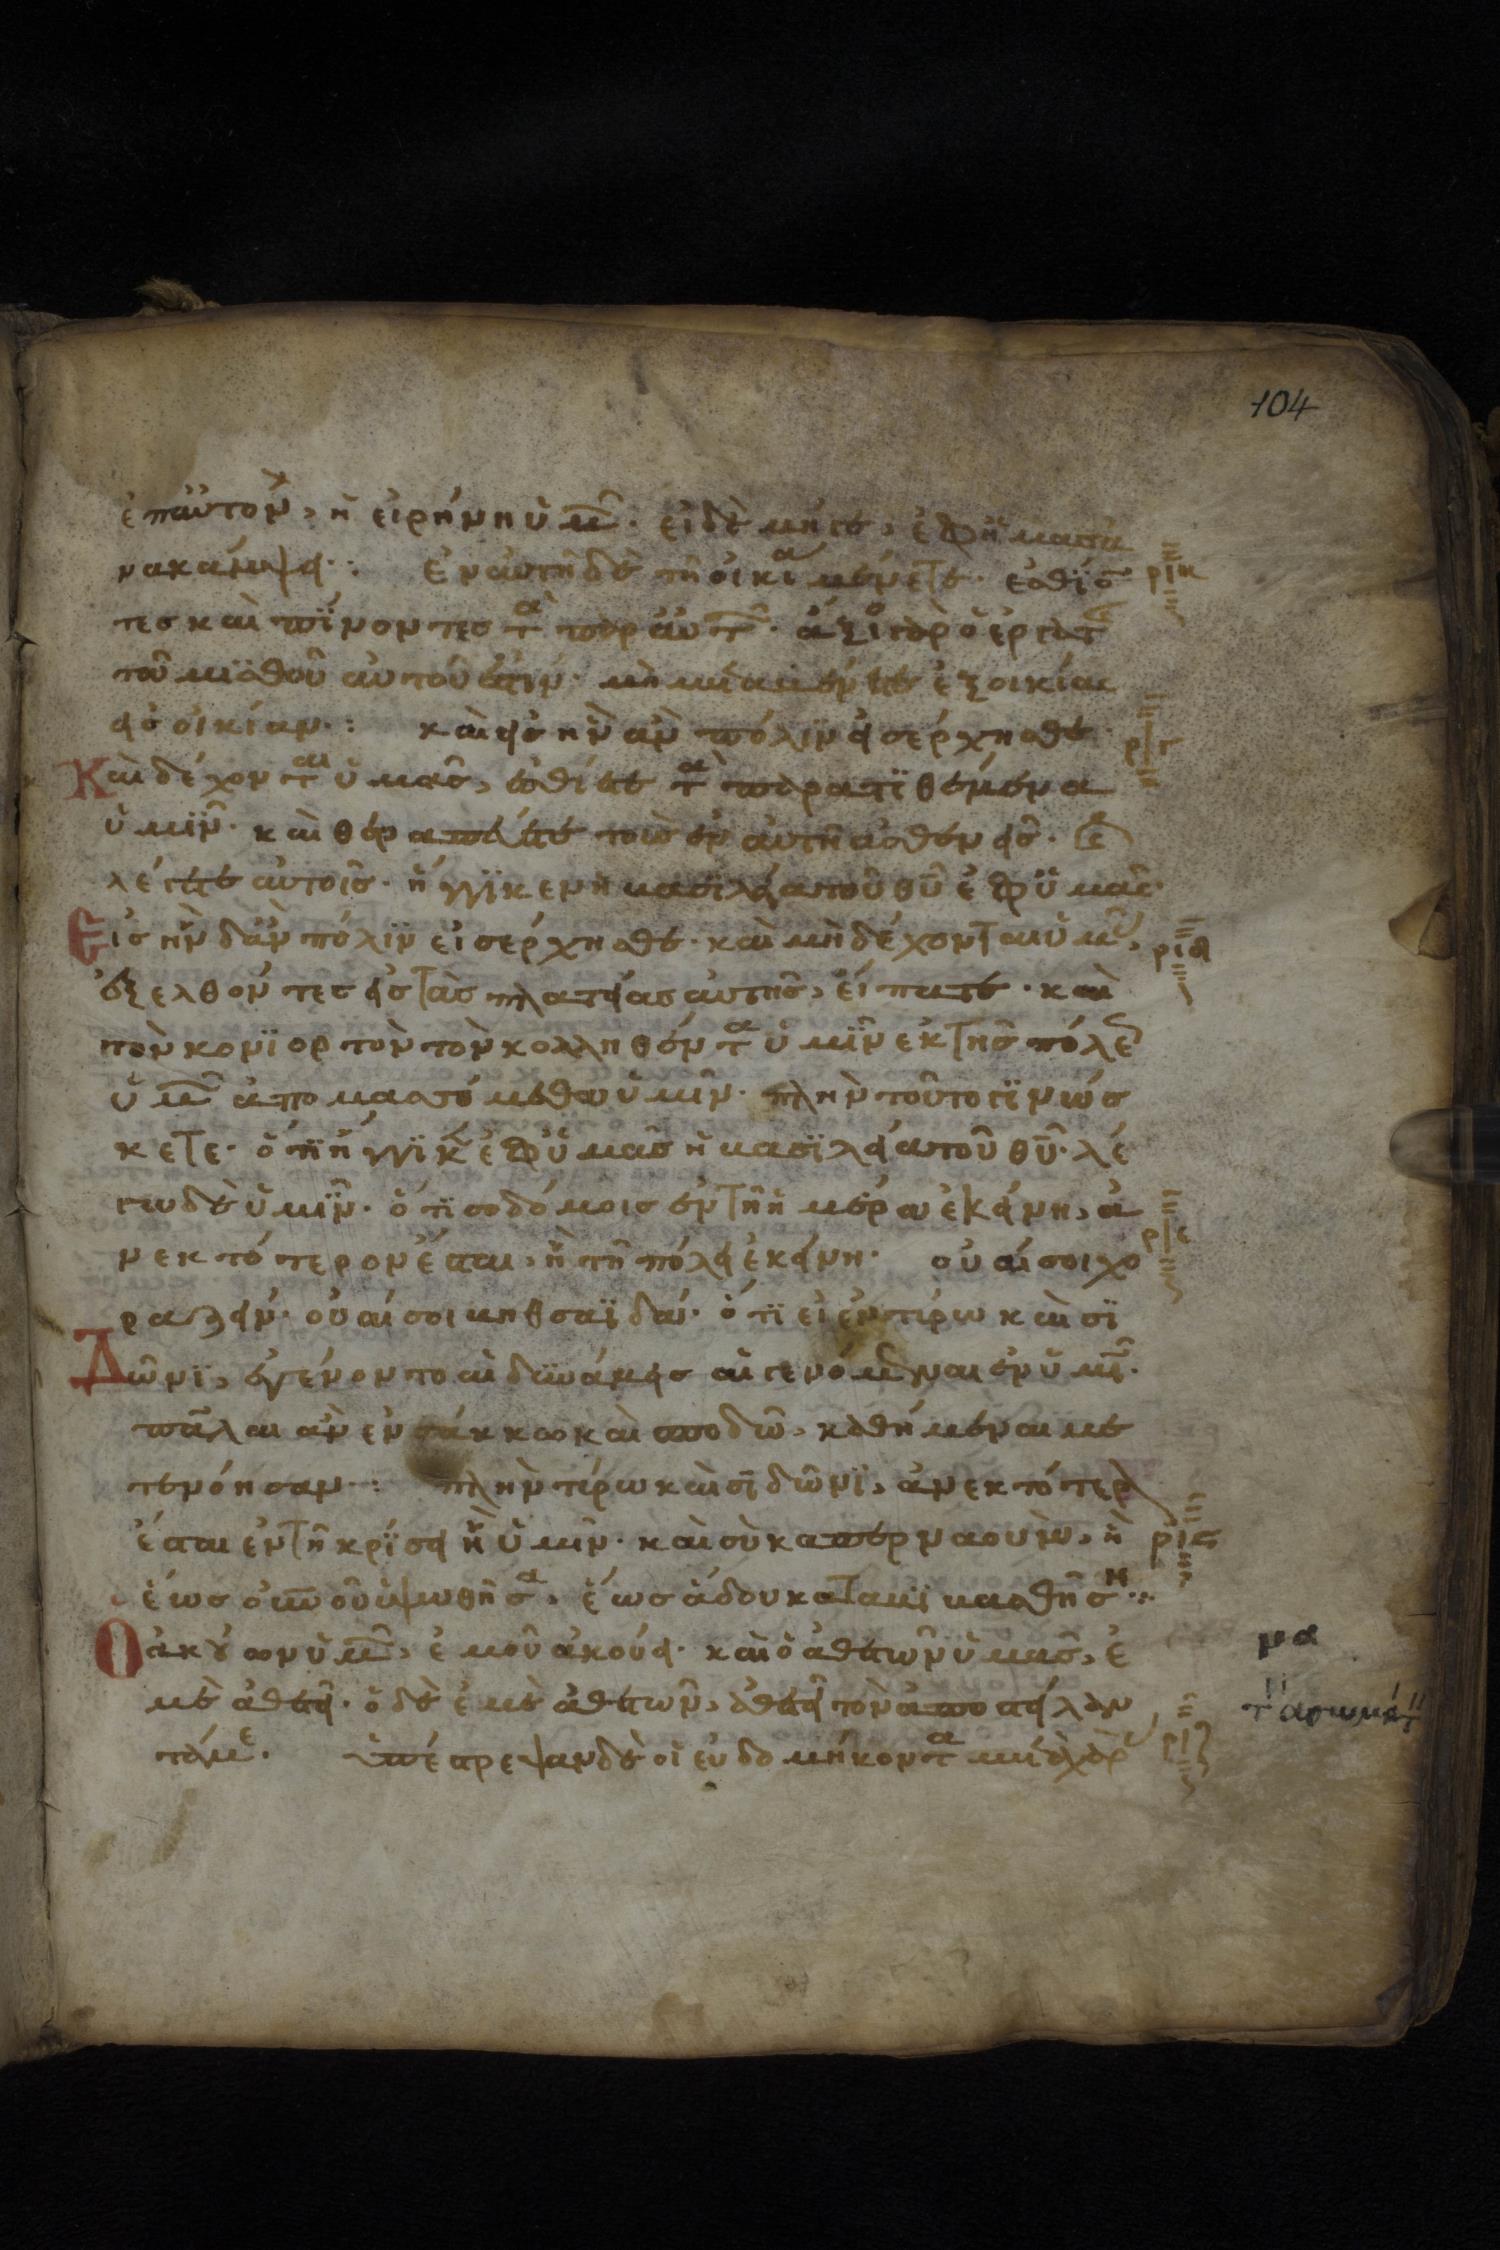 104
ἐπ αὐτὸν, ἡ εἰρήνη ὑμῶν. εἰ δὲ μήγε, ἐφ ὑμᾶς ἀ
νακάμψει·: Ἐν αὐτῇ δὲ τῇ οἰκία μένετε. ἐσθίον ριβ
τες καὶ πίνοντες τὰ παρ αὐτῶν. ἄξιος γὰρ ὁ ἐργάτης
τοῦ μισθοῦ αὐτοῦ ἐστιν. μὴ μεταβαίνετε ἐξ οἰκίας
εἰς οἰκίαν·: καὶ εἰς ἣν ἂν πόλιν εἰσέρχησθε ριγ
Καὶ δέχονται ὑμᾶς, ἐσθίετε τὰ παρατιθέμενα
ὑμῖν. καὶ θεραπεύετε τοὺς ἐν αὐτῇ ἀσθενεῖς. καὶ
λέγετε αὐτοῖς. ἤγγικεν ἡ βασιλεία τοῦ θυ ἐφ ὑμᾶς.
Εἰς ἣν δ ἂν πόλιν εἰσέρχησθε. καὶ μὴ δέχονται ὑμᾶς, ριδ
ἐξελθόντες εἰς τὰς πλατείας αὐτῆς, εἴπατε. καὶ
τὸν κονιορτὸν τὸν κολληθέντα ὑμῖν ἐκ τῆς πόλεως
ὑμῶν ἀπομασσόμεθα ὑμῖν. πλὴν τοῦτο γινώσ
κετε. ὅτι ἤγγικεν ἐφ ὑμᾶς ἡ βασιλεία τοῦ θυ. λέ
γω δὲ ὑμῖν. ὅτι σοδόμοις ἐν τῇ ἡμέρα ἐκείνη, ἀ
νεκτότερον ἔσται, ἢ τῇ πόλει ἐκείνη. οὐαί σοι χο ριε
ραζείν. οὐαί σοι βηθσαϊδά. ὅτι εἰ ἐν τύρω καὶ σι
Δῶνι, ἐγένοντο αἱ δυνάμεις αἱ γενόμεναι ἐν ὑμῖν.
πάλαι ἂν ἐν σάκκω καὶ σποδῶ, καθήμεναι με
τενόησαν·: πλὴν τύρω καὶ σιδῶνι, ἀνεκτότερον
ἔσται ἐν τῇ κρίσει ἢ ὑμῖν. καὶ σὺ καπερναούμ, ἡ ριϛ
ἕως οὐνοῦ ὑψωθῆσα, ἕως ἅδου καταβιβασθήση·:
Ὁ ἀκούων ὑμῶν, ἐμοῦ ἀκούει. καὶ ὁ ἀθετῶν ὑμᾶς, ἐ
μὲ ἀθετεῖ. ὁ δὲ ἐμὲ ἀθετῶν, ἀθετεῖ τὸν ἀποστείλαν
τά με. Ὑπέστρεψαν δὲ οἱ ἑβδομήκοντα μετὰ χαρᾶς ριζ